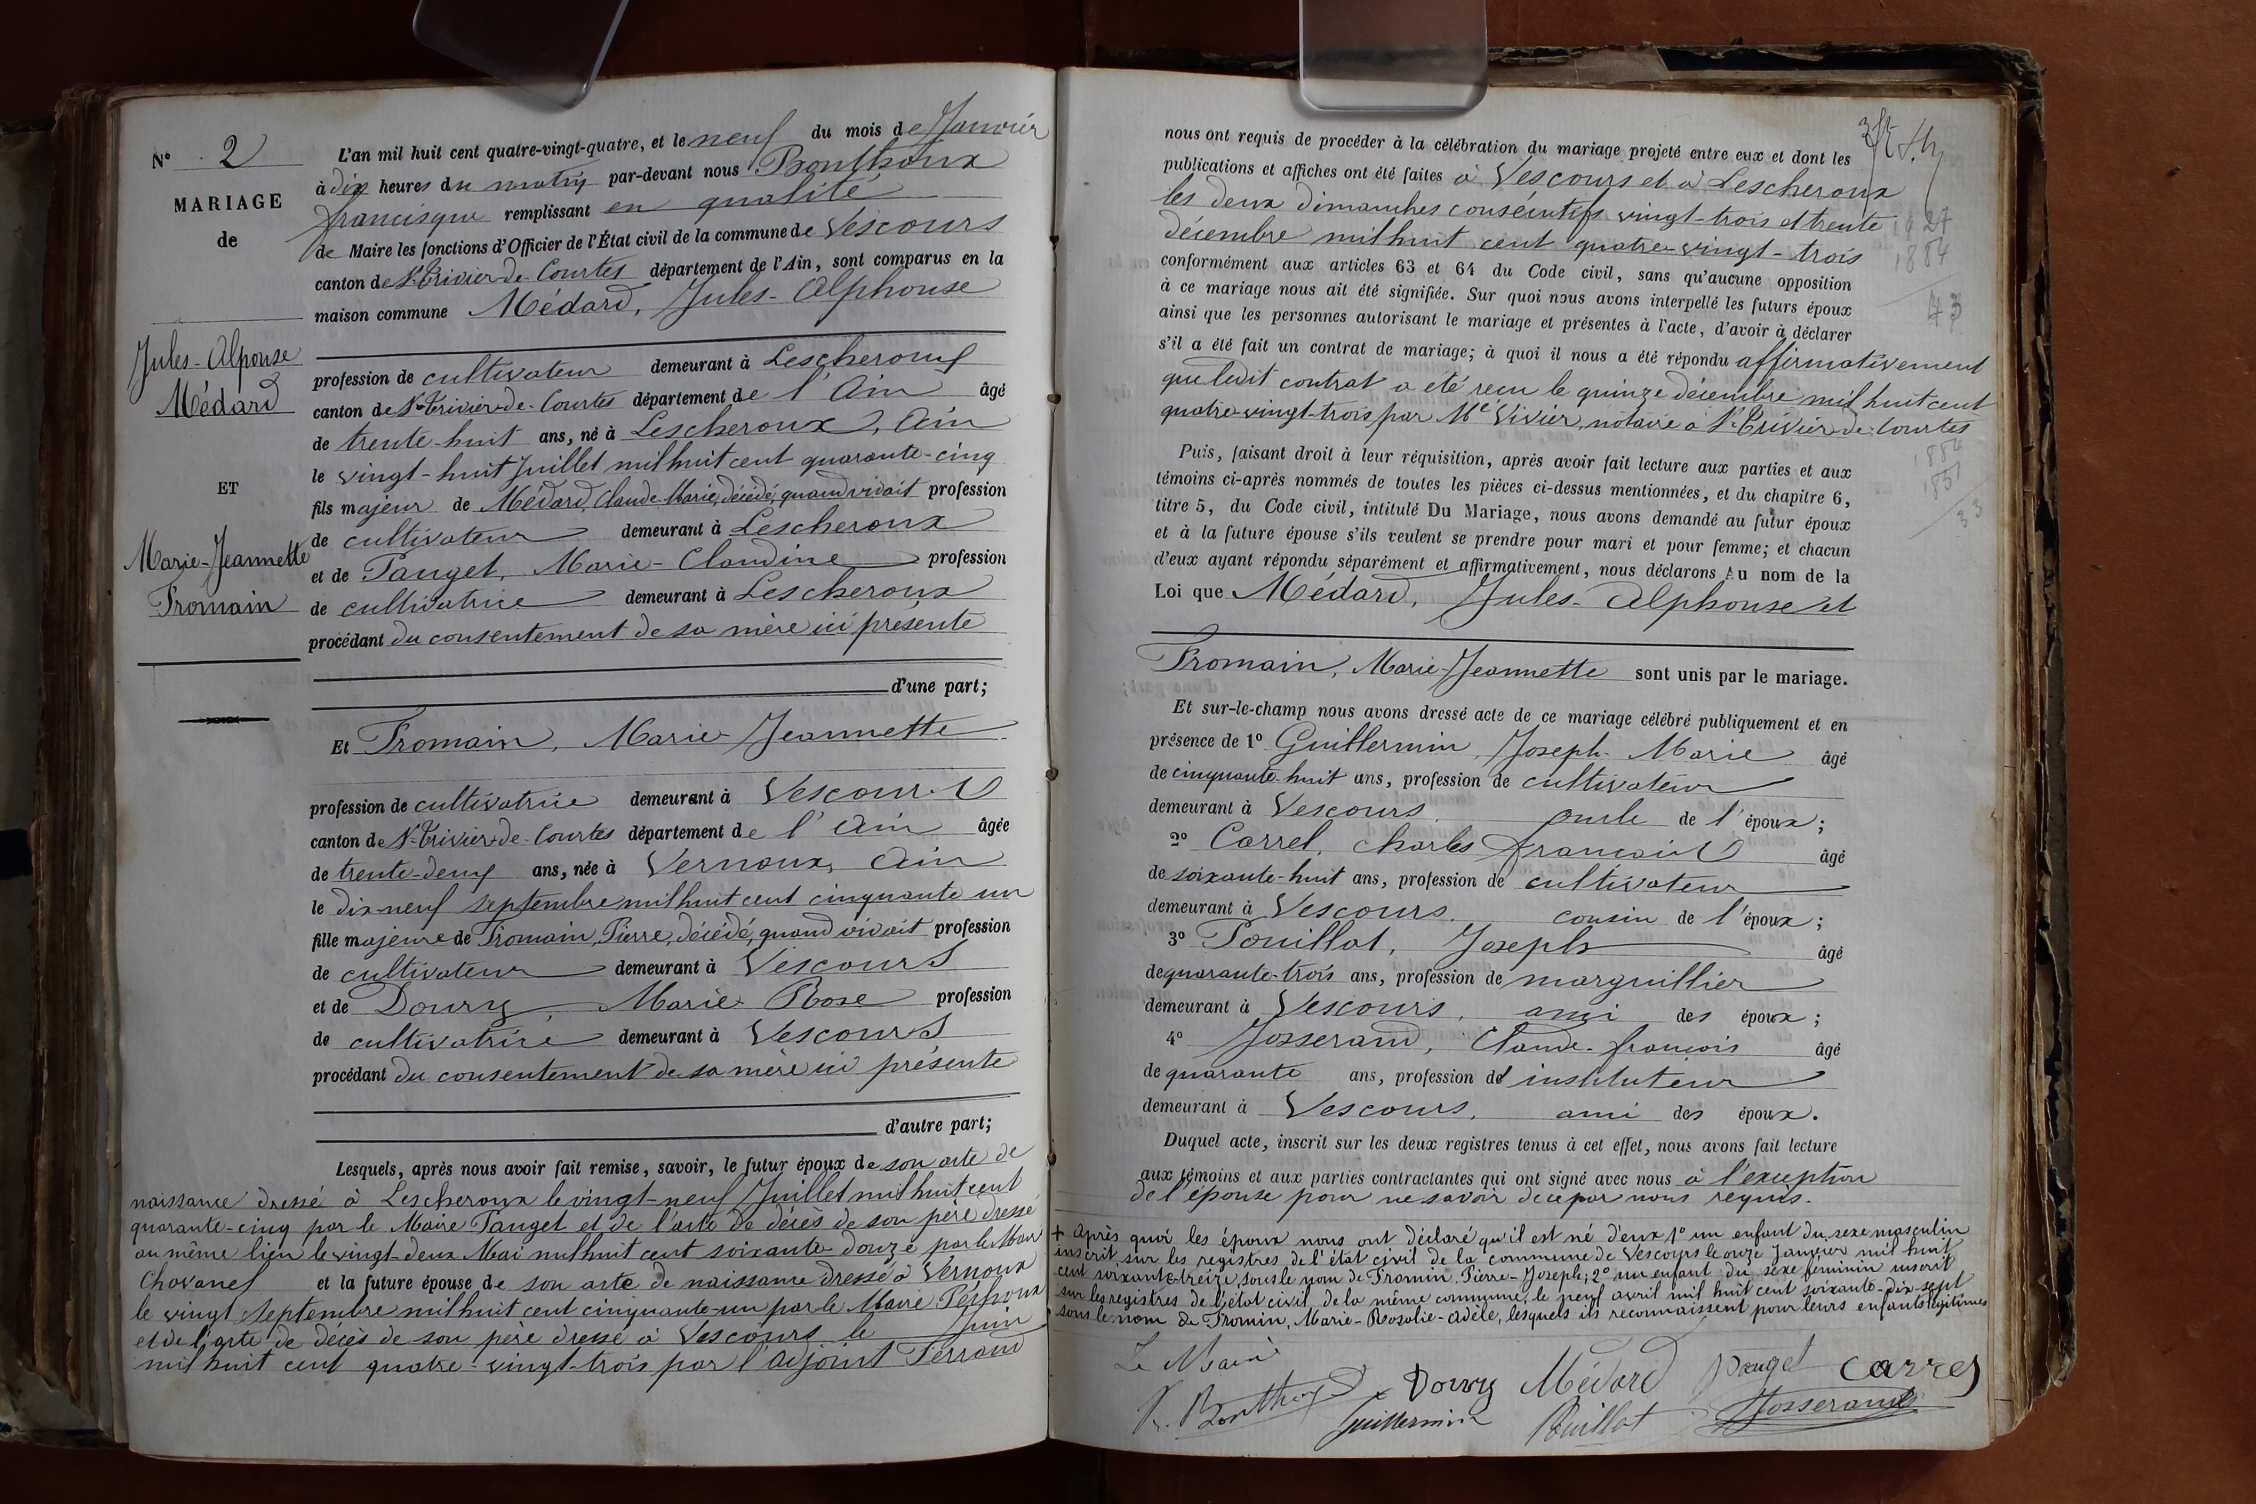 N° 2
MARIAGE
de
Jules-Alponse
Médard
ET
Marie-Jeannette
Fromain
L'an mil huit cent quatre-vingt-quatre, et le neuf du mois de Janvier
à dix heures du matin par-devant nous Bonthoux
francisque remplissant en qualité
de Maire les fonctions d'Officier de l'État civil de la commune de Vescours
canton de St-Trivier-de-Courtes département de l'Ain, sont comparus en la
maison commune Médard, Jules-Alphonse
profession de cultivateur demeurant à Lescheroux
canton de St-Trivier-de-Courtes département de l'Ain âgé
de trente-huit ans, né à Lescheroux, Ain
le vingt-huit Juillet mil huit cent quarante-cinq
fils majeur de Médard, Claude-Marie, décédé, quand vivait profession
de cultivateur demeurant à Lescheroux
et de Panget, Marie-Claudine profession
de cultivatrice demeurant à Lescheroux
procédant du consentement de sa mère ici présente
d'une part;
Et Fromain, Marie-Jeannette
profession de cultivatrice demeurant à Vescours
canton de St-Trivier-de-Courtes département de l'Ain âgée
de trente-deux ans, née à Vernoux, Ain
le dix-neuf septembre mil huit cent cinquante un
fille majeure de Fromain, Pierre, décédé, quand vivait profession
de cultivateur demeurant à Vescours
et de Doury, Marie-Rose profession
de cultivatrice demeurant à Vescours
procédant du consentement de sa mère ici présente
d'autre part;
Lesquels, après nous avoir fait remise, savoir, le futur époux de son acte de
naissance dressé à Lescheroux le vingt-neuf Juillet mil huit cent
quarante-cinq par le Maire Panget et de l'acte de décès de son père dressé
au même lieu le vingt-deux Mai mil huit cent soixante-douze par le Maire
Chovanel et la future épouse de son acte de naissance dressé à Vernoux
le vingt septembre mil huit cent cinquante-un par le Maire
et de l'acte de décès de son père dressé à Vescours le Juin
mil huit cent quatre-vingt-trois par l'adjoint Ferrand
nous ont requis de procéder à la célébration du mariage projeté entre eux et dont les
publications et affiches ont été faites à Vescours et à Lescheroux
les deux dimanches consécutifs vingt-trois et trente
décembre mil huit cent quatre-vingt-trois
conformément aux articles 63 et 64 du Code civil, sans qu'aucune opposition
à ce mariage nous ait été signifiée. Sur quoi nous avons interpellé les futurs époux
ainsi que les personnes autorisant le mariage et présentes à l'acte, d'avoir à déclarer
s'il a été fait un contrat de mariage; à quoi il nous a été répondu affirmativement
que ledit contrat a été reçu le quinze décembre mil huit cent
quatre-vingt-trois par Me Vivier, notaire à St-Trivier-de-Courtes
Puis, faisant droit à leur réquisition, après avoir fait lecture aux parties et aux
témoins ci-après nommés de toutes les pièces ci-dessus mentionnées, et du chapitre 6,
titre 5, du Code civil, intitulé Du Mariage, nous avons demandé au futur époux
et à la future épouse s'ils veulent se prendre pour mari et pour femme; et chacun
d'eux ayant répondu séparément et affirmativement, nous déclarons Au nom de la
Loi que Médard, Jules-Alphonse et
Fromain, Marie-Jeannette sont unis par le mariage.
Et sur-le-champ nous avons dressé acte de ce mariage célébré publiquement et en
présence de 1° Guillermin, Joseph-Marie âgé
de cinquante-huit ans, profession de cultivateur
demeurant à Vescours. oncle de l'époux;
2° Carrel, Charles françois âgé
de soixante-huit ans, profession de cultivateur
demeurant à Vescours. cousin de l'époux;
3° Pouillat, Joseph âgé
de quarante-trois ans, profession de marguillier
demeurant à Vescours, ami des époux;
4° Josserand, Claude-françois âgé
de quarante ans, profession d'instituteur
demeurant à Vescours, ami des époux.
Duquel acte, inscrit sur les deux registres tenus à cet effet, nous avons fait lecture
aux témoins et aux parties contractantes qui ont signé avec nous à l'exception
de l'épouse pour ne savoir de ce par nous requis.
+ Après quoi les époux nous ont déclaré qu'il est né d'eux 1° un enfant du sexe masculin
inscrit sur les registres de l'état civil de la commune de Vescours le onze Janvier mil huit
cent soixante-treize sous le nom de Fromin, Pierre-Joseph; 2° un enfant du sexe féminin inscrit
sur les registres de l'état civil de la même commune, le neuf avril mil huit cent soixante-dix-sept
sous le nom de Fromin, Marie-Rosalie-Adèle, lesquels ils reconnaissent pour leurs enfants légitimes
Le Maire
F. Bonthoux Doury Médard Panget Carrel
Guillermin Pouillat Josserand
1884
43
1884
1851
33